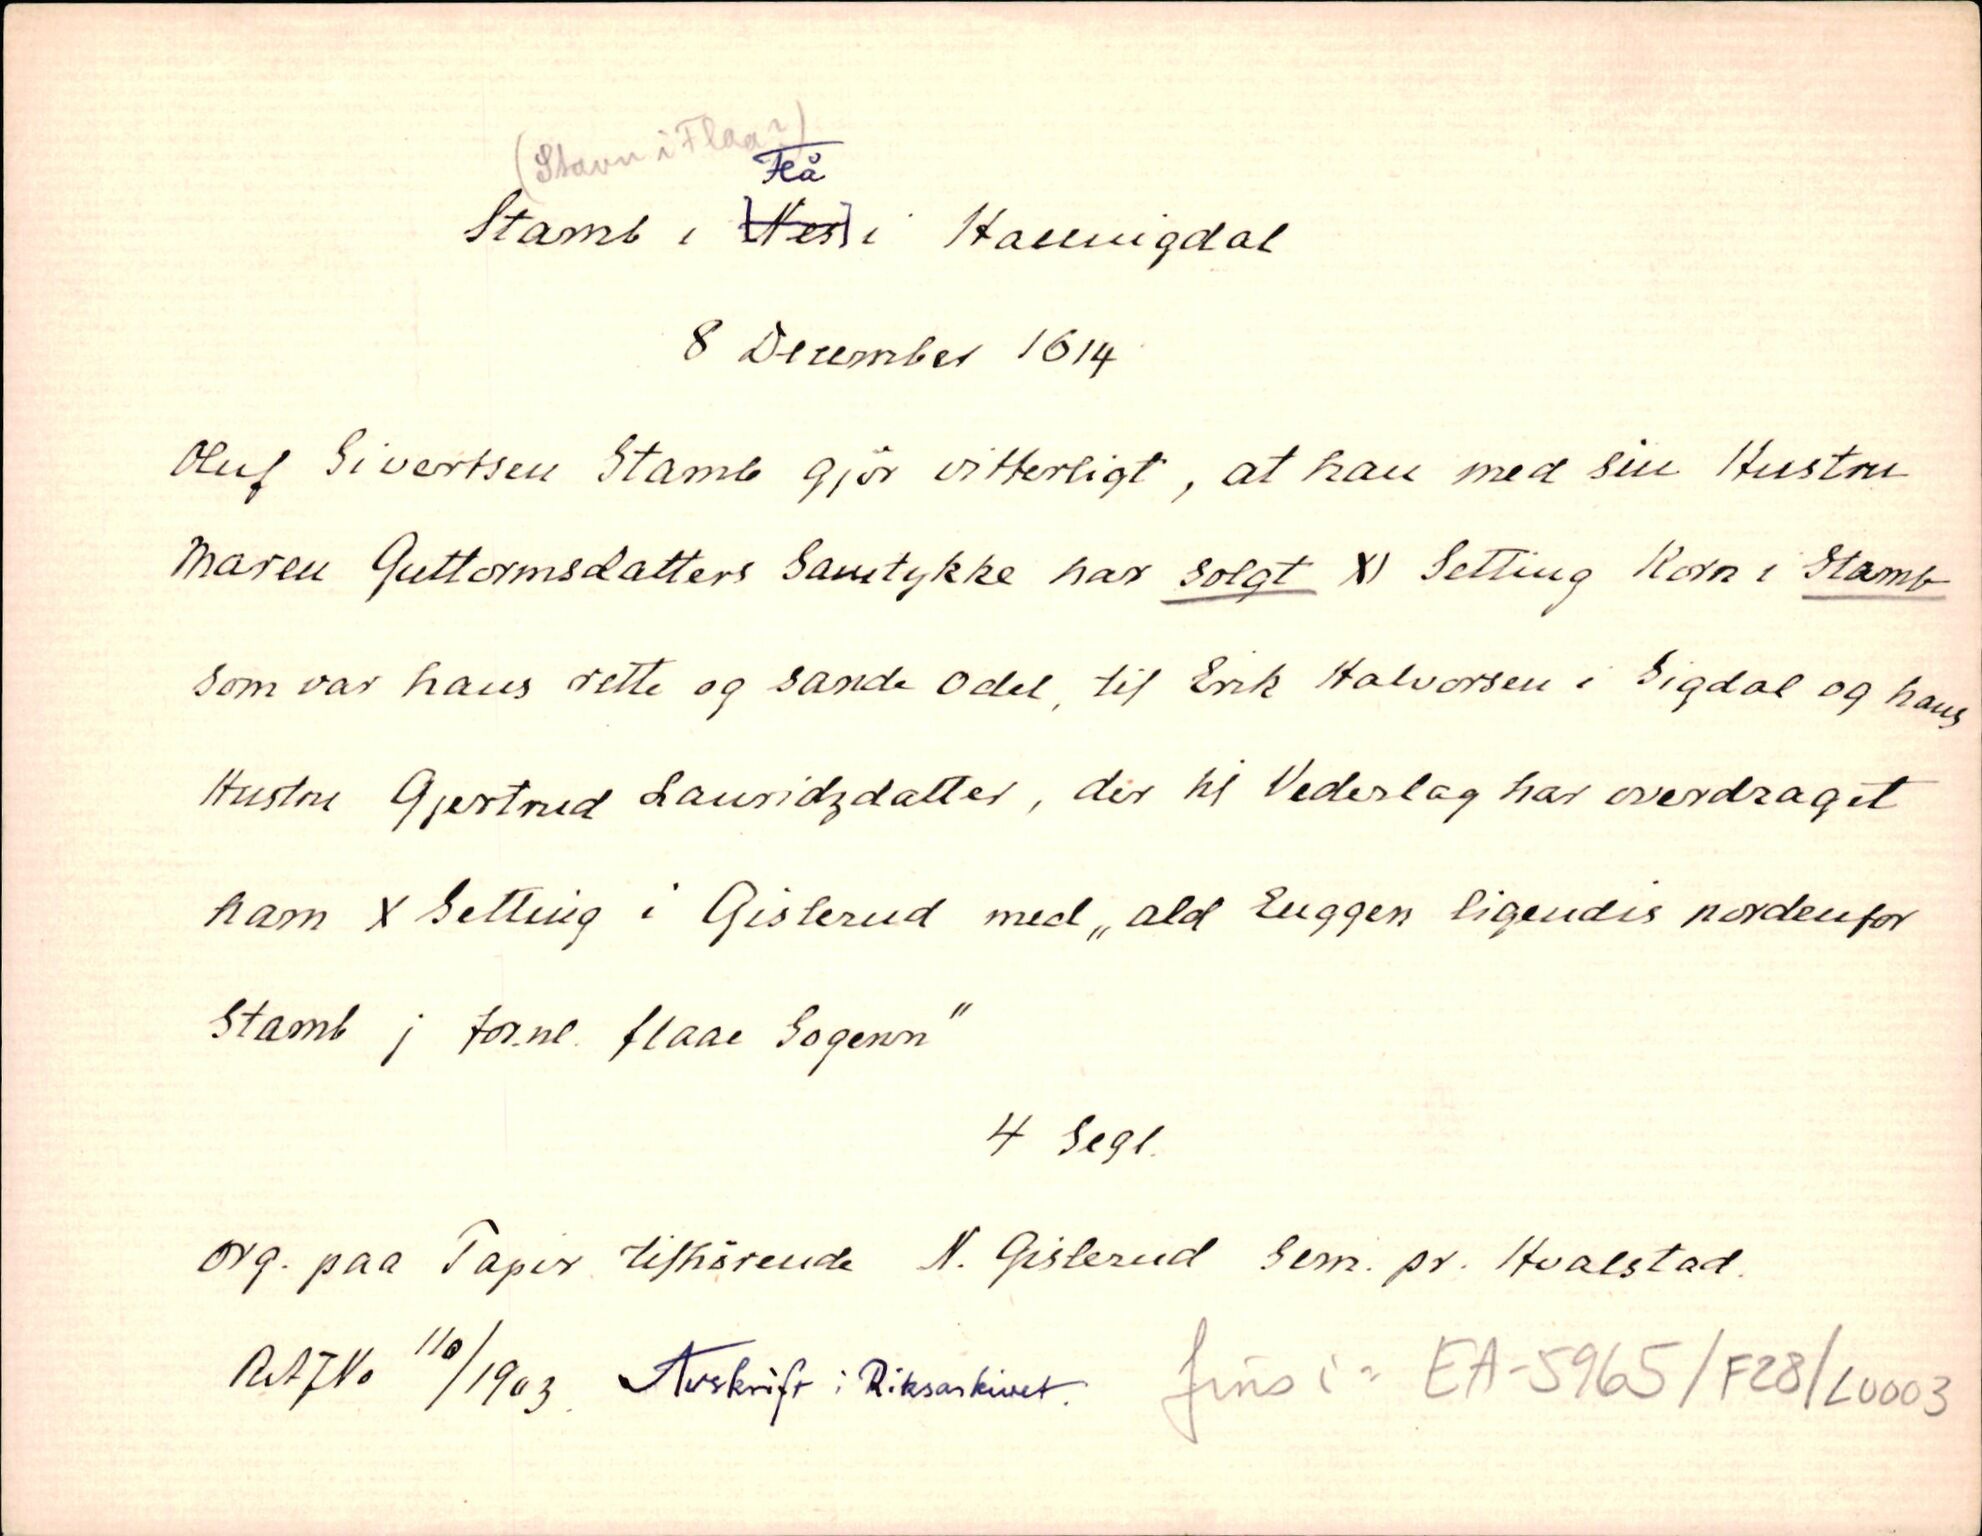 (Stavn i Flaa?)
Flå
Stamb i [Nes] i Hallingdal
8 December 1614
Oluf Sivertsen Stamb gjör vitterligt, at han med sin Hustru
Maren Guttormsdatters Samtykke har solgt XI Setting Korn i Stamb
som var hans rette og sande Odel, til Erik Halvorsen i Sigdal og hans
Hustru Gjertrud Lauridzdatter, der til Vederlag har overdraget
ham X Setting i Gislerud med „ald Euggen ligendis nordenfor
Stamb j for.nl. flaae Sogenn"
4 Segl.
Org. paa Papir tilhörende N. Gislerud Sem. pr. Hvalstad.
RAJNo 110/1903. Avskrift i Riksarkivet.
fins i EA-5965/F28/L0003